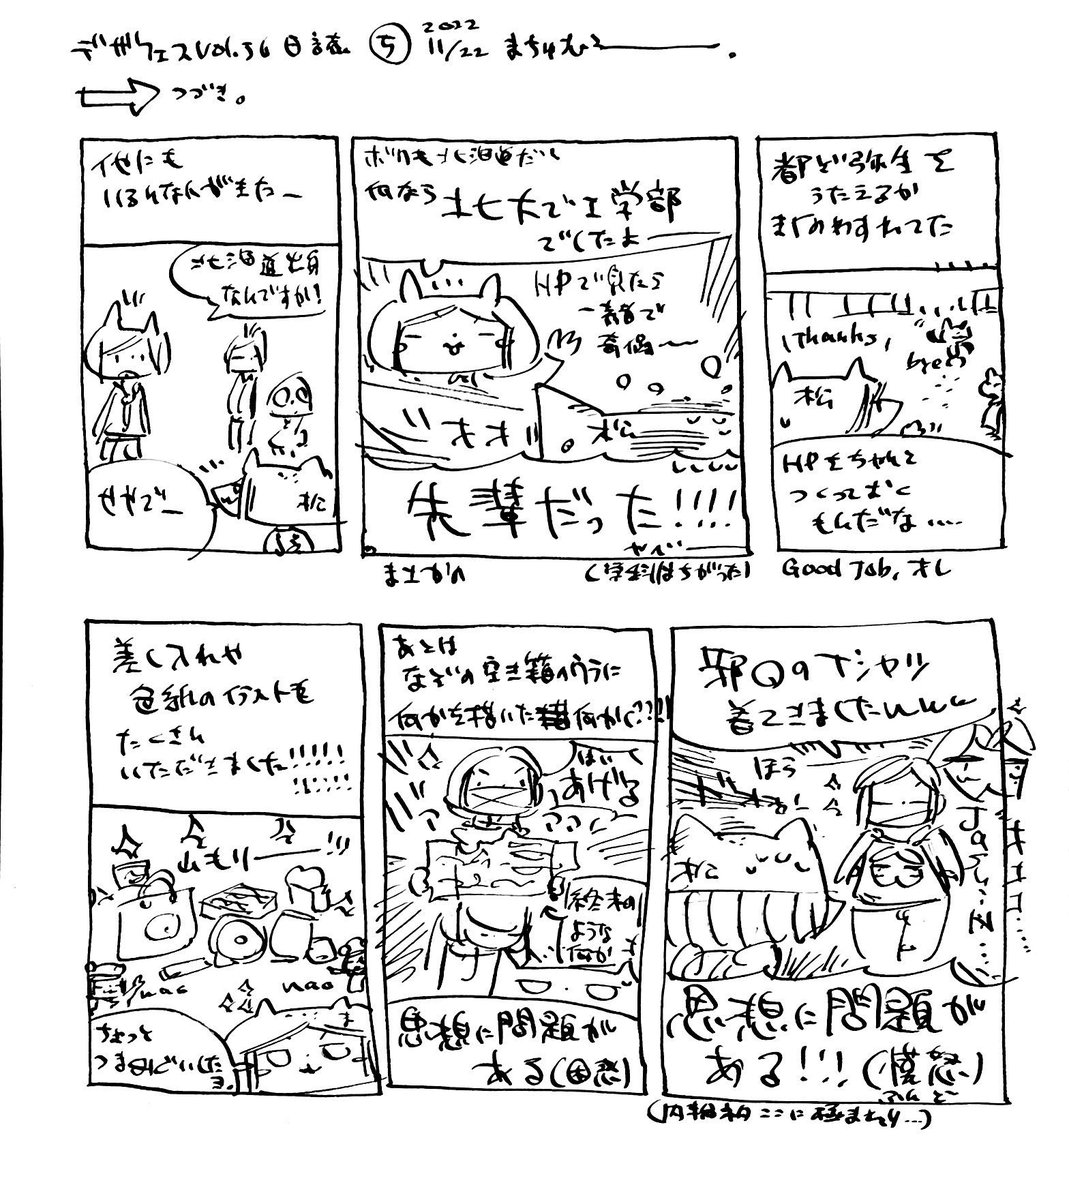 デザフェスvol.56 日誌 ⑤ 2022 11/22
つづき。
他にも
いろんな人がきたー
北海道出身
なんですか!
せやでー
松
ボクも北海道だし
何なら 北大で工学部
でしたよー
HPで見たら
一番で
奇偶〜
オオ!!
松
先輩だった!!!!
やべー
まさかの
(学科はちがった)
都ど弥生を
うたえるか
きくのわすれてた
Thanks,
bye
松
HPもちゃんと
つくっておく
もんだな....
Good Job, オレ
差し入れや
色紙のイラストも
たくさん
いただきました!!!!!
山もりー!!
nao
ちょっと
つまんでいいたよ
あとは
なぞの空き箱のウラに
何かを描いた何かく???!!
はい
あげる
終末の
ような
なにか
思想に問題が
ある(困惑)
邪QのTシャツ
着てきましたwww
ほら
松
思想に問題が
ある!!!(憤怒)
ふんど
(内輪ネタここに極まれり...)